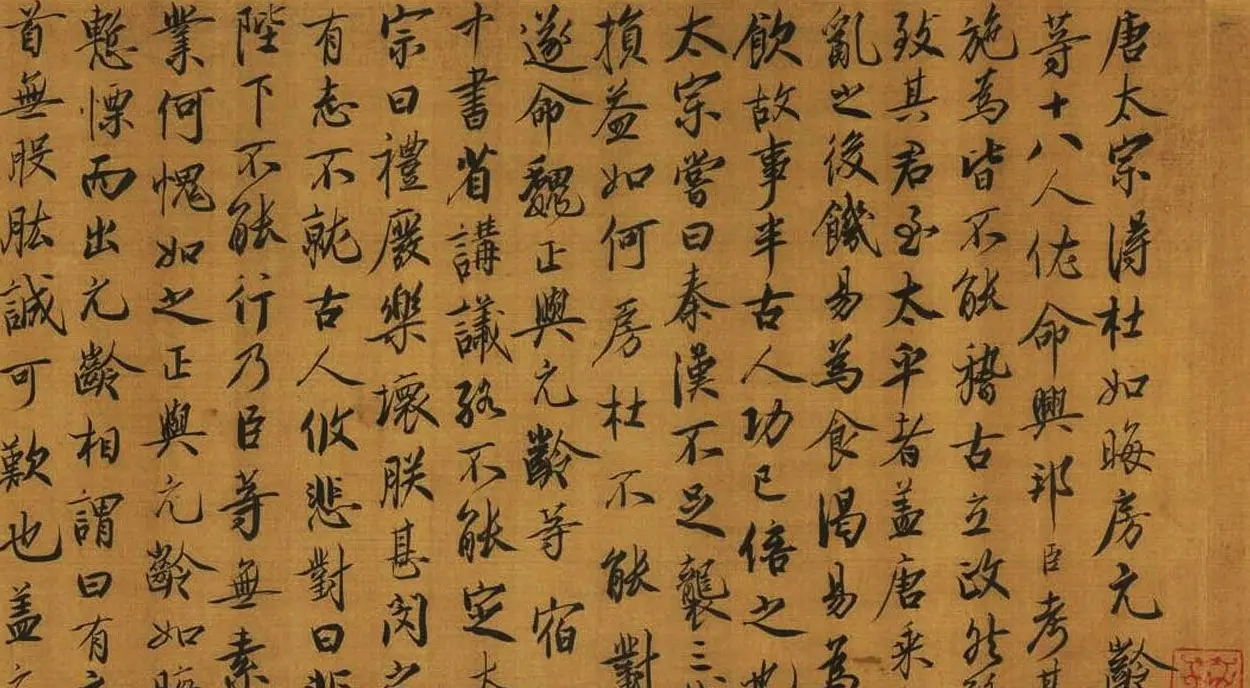 唐太宗得杜如晦房元齡
等十八人佐命興邦臣考其
施為皆不能稽古立政然
致其君至太平者盖唐乘
亂之後饑易為食渴易為
飲故事半古人功已倍之
太宗嘗曰秦漢不足襲三
損益如何房杜不能對
遂命魏正與元齡等宿
中書省講議終不能定太
宗曰禮廢樂壞朕甚閔之
有志不就古人攸悲對曰非
陛下不能行乃臣等無素
業何愧如之正與元齡如晦
慙慄而出元齡相謂曰有元
首無股肱誠可歎也盖